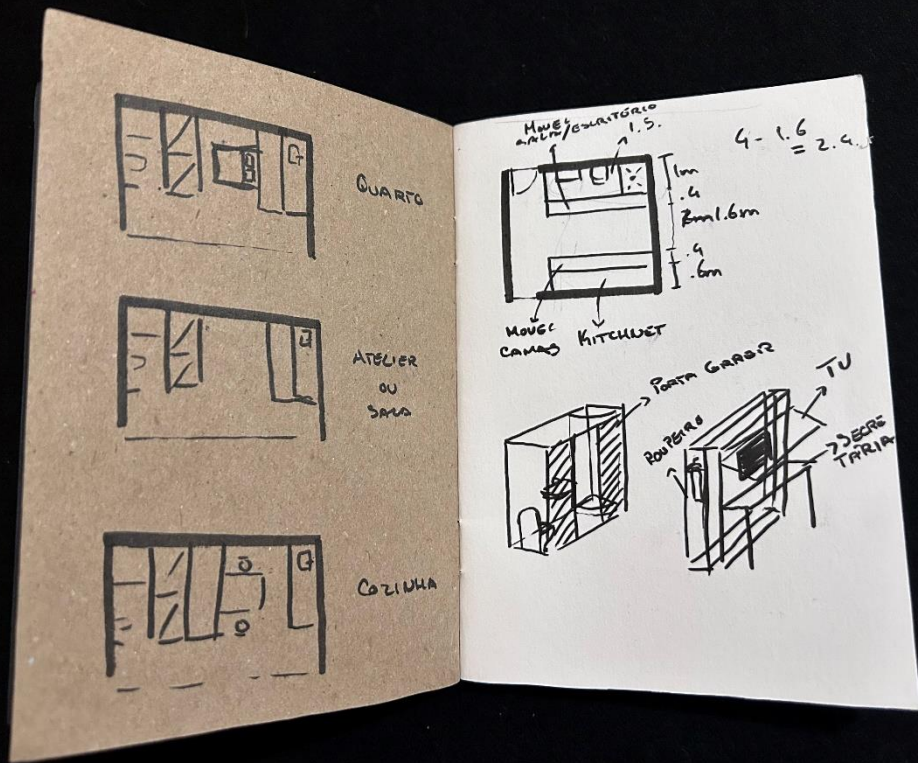 QUARTO
ATELIER
OU
SALA
COZINHA
MOVEL
/ESCRITÓRIO
I.S.
4 - 1.6
= 2.4
1m
.4
1.6m
.4
.6m
MOVEL
CAMAS
KITCHNET
PORTA
TV
ROUPEIRO
SECRE
TÁRIA